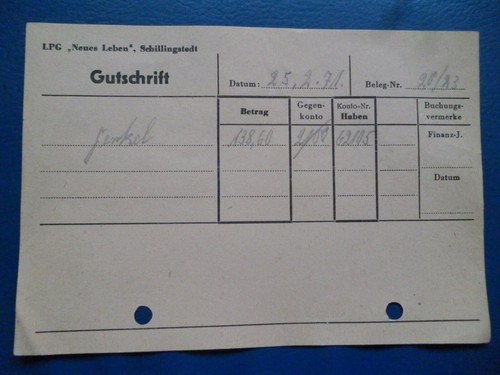 LPG „Neues Leben“, Schillingstedt
Gutschrift
Datum: 25. 2. 71. Beleg-Nr. 20/23
Betrag
Gegen-
konto
Konto-Nr.
Haben
Buchungs-
vermerke
138,60 62105
Finanz-J.
Datum